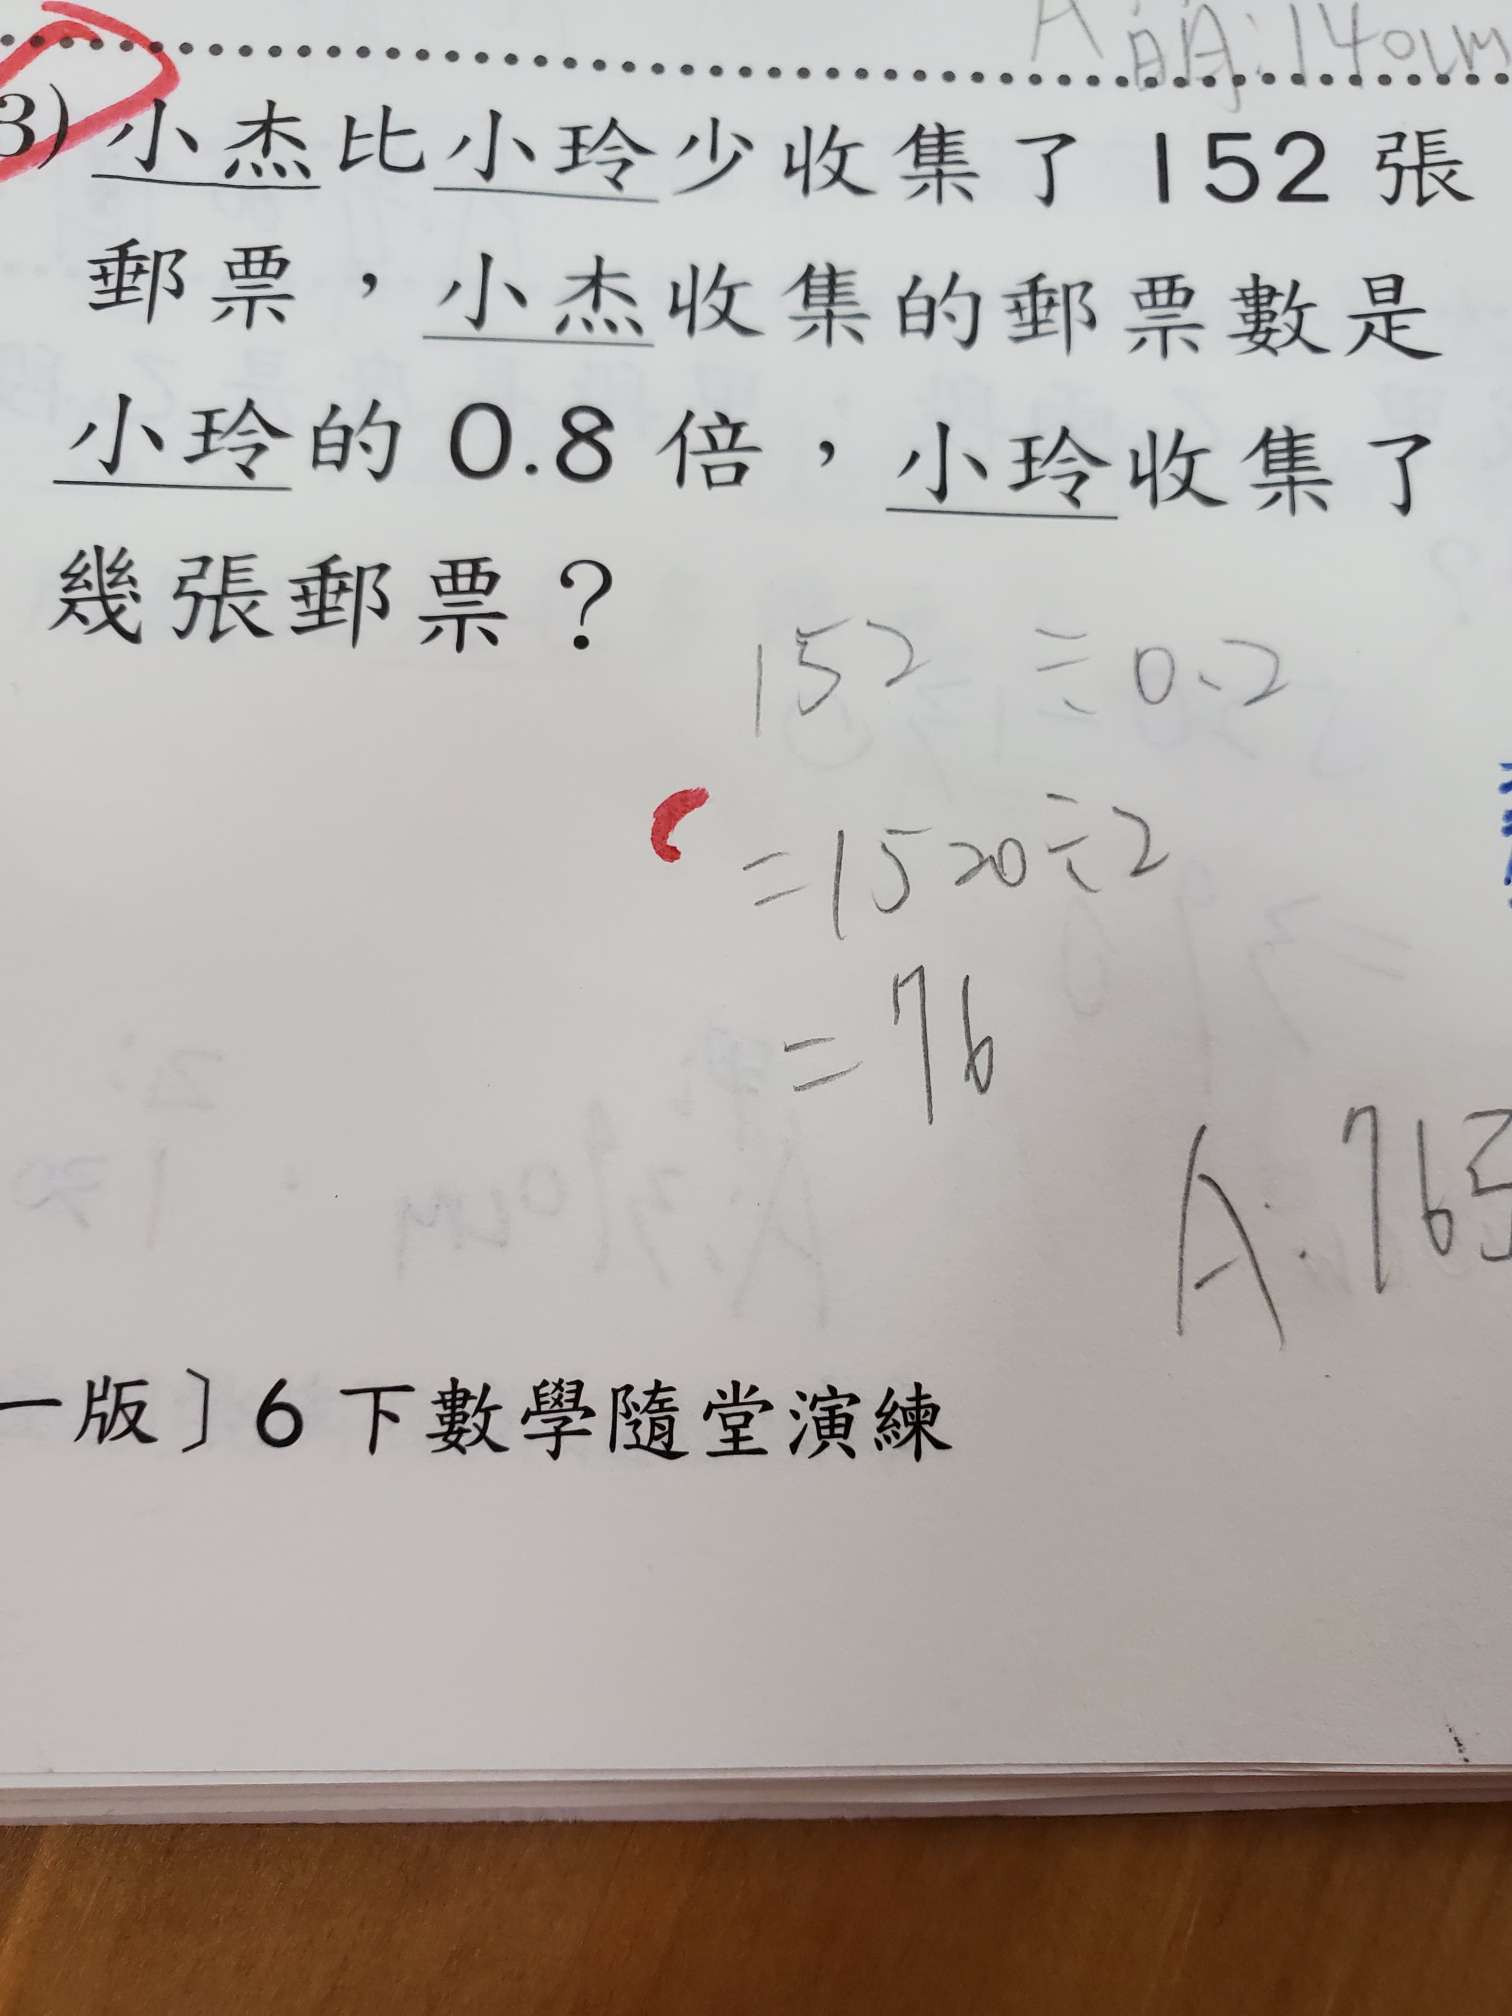 A 萌:140cm
3) 小杰比小玲少收集了 152 張
郵票，小杰收集的郵票數是
小玲的 0.8 倍，小玲收集了
幾張郵票？
152 ÷ 0.2
=1520÷2
= 76
A:76
一版〕6 下數學隨堂演練